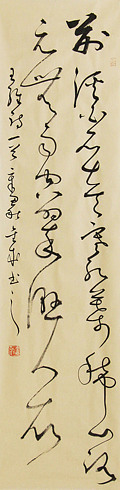 荆溪白石出天寒紅葉稀山路
元無雨空翠濕人衣
王維詩一首辛丑秋書之